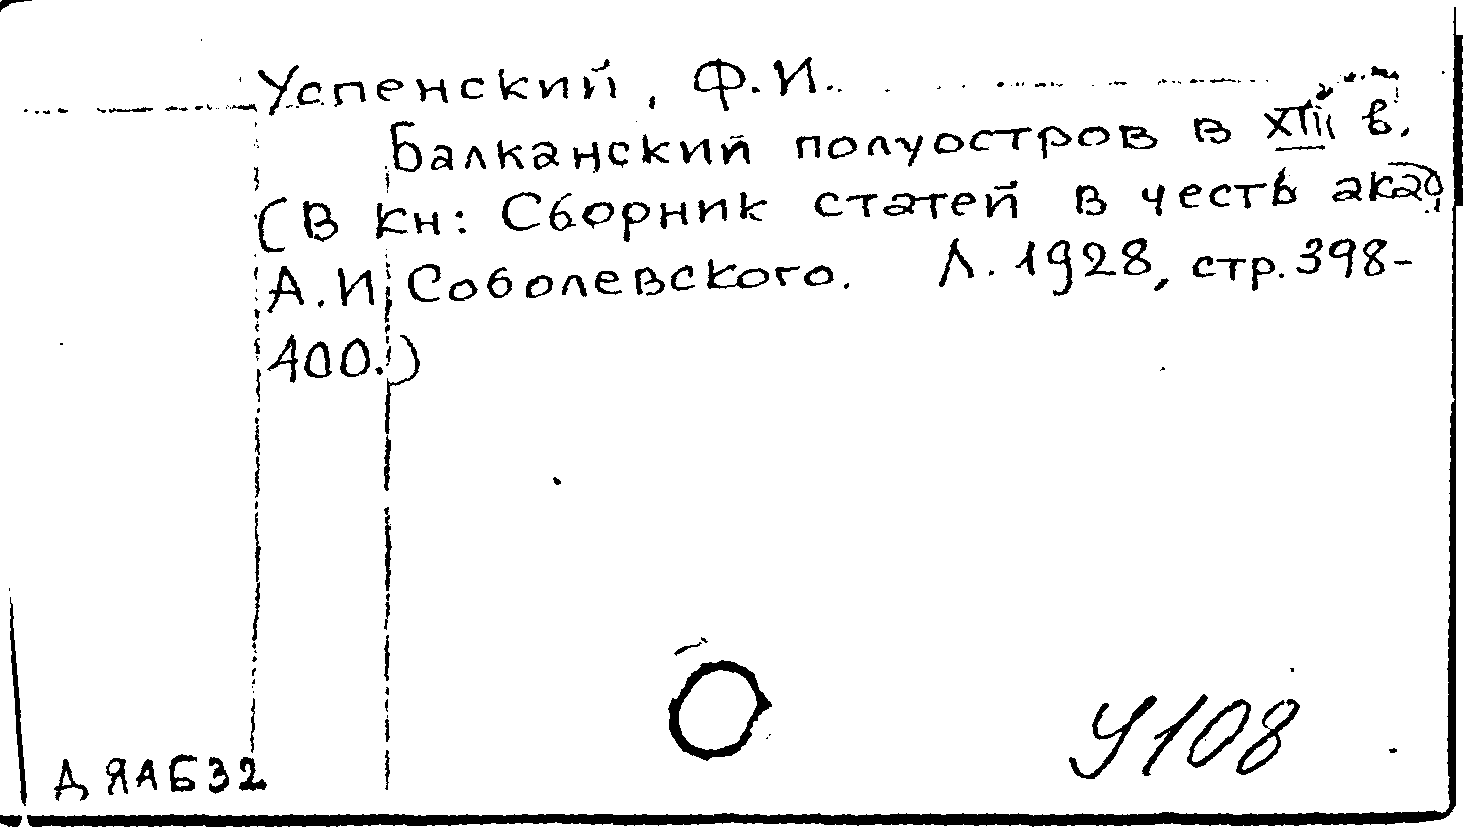 Успенский, Ф.И.
Балканский полуостров в XIII в.
(В кн: Сборник статей в честь акад.
А.И. Соболевского. Л. 1928, стр. 398-
400.)
У108
ДЯАБ32